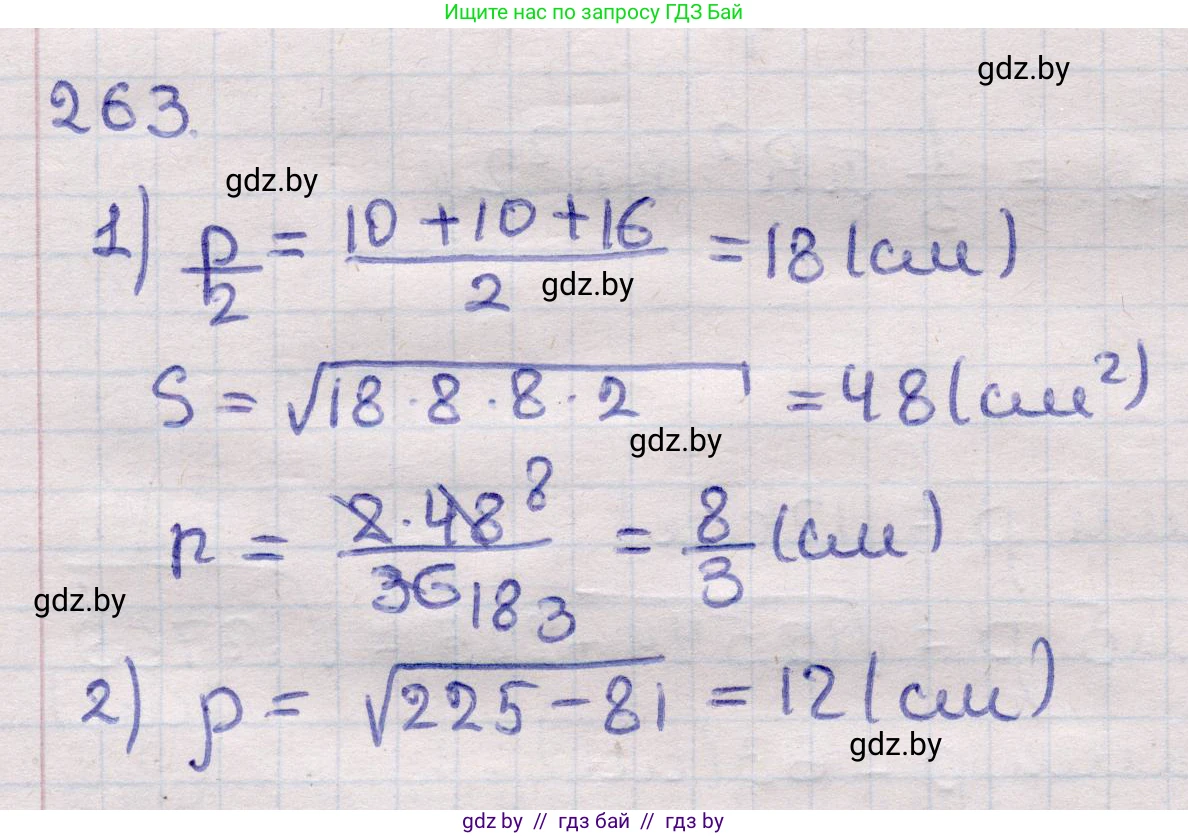 Ищите нас по запросу ГДЗ Бай
gdz.by
263.
gdz.by
1) p/2 = (10 + 10 + 16)/2 = 18 (см)
gdz.by
S = √(18 · 8 · 8 · 2) = 48 (см²)
gdz.by
r = (2 · 48 8)/(36 18 3) = 8/3 (см)
gdz.by
2) p = √(225 - 81) = 12 (см)
gdz.by
gdz.by // гдз бай // gdz.by